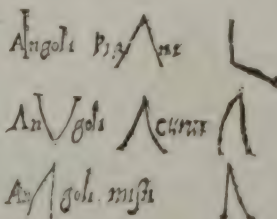 Angoli Piani
Angoli curui
Angoli misti